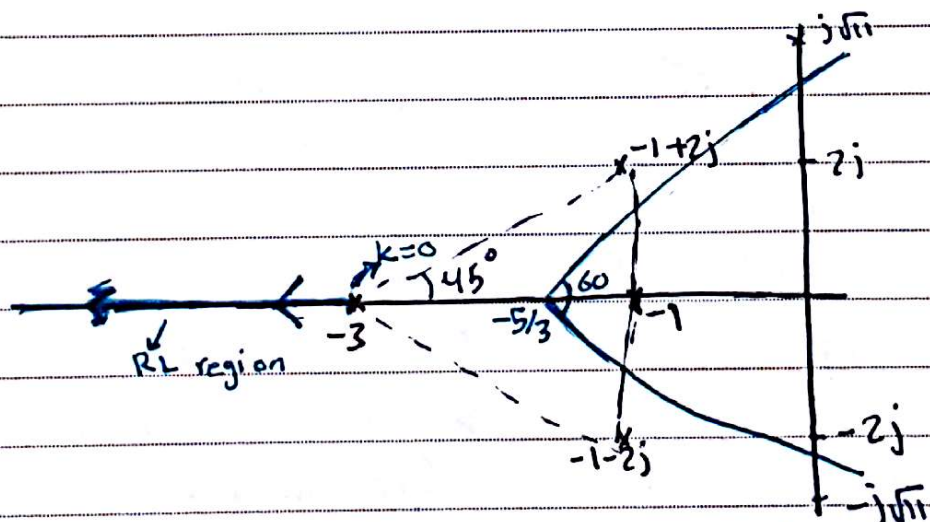 j√11
-1+2j
2j
k=0
45°
60
-3
-5/3
-1
RL region
-2j
-1-2j
-j√11